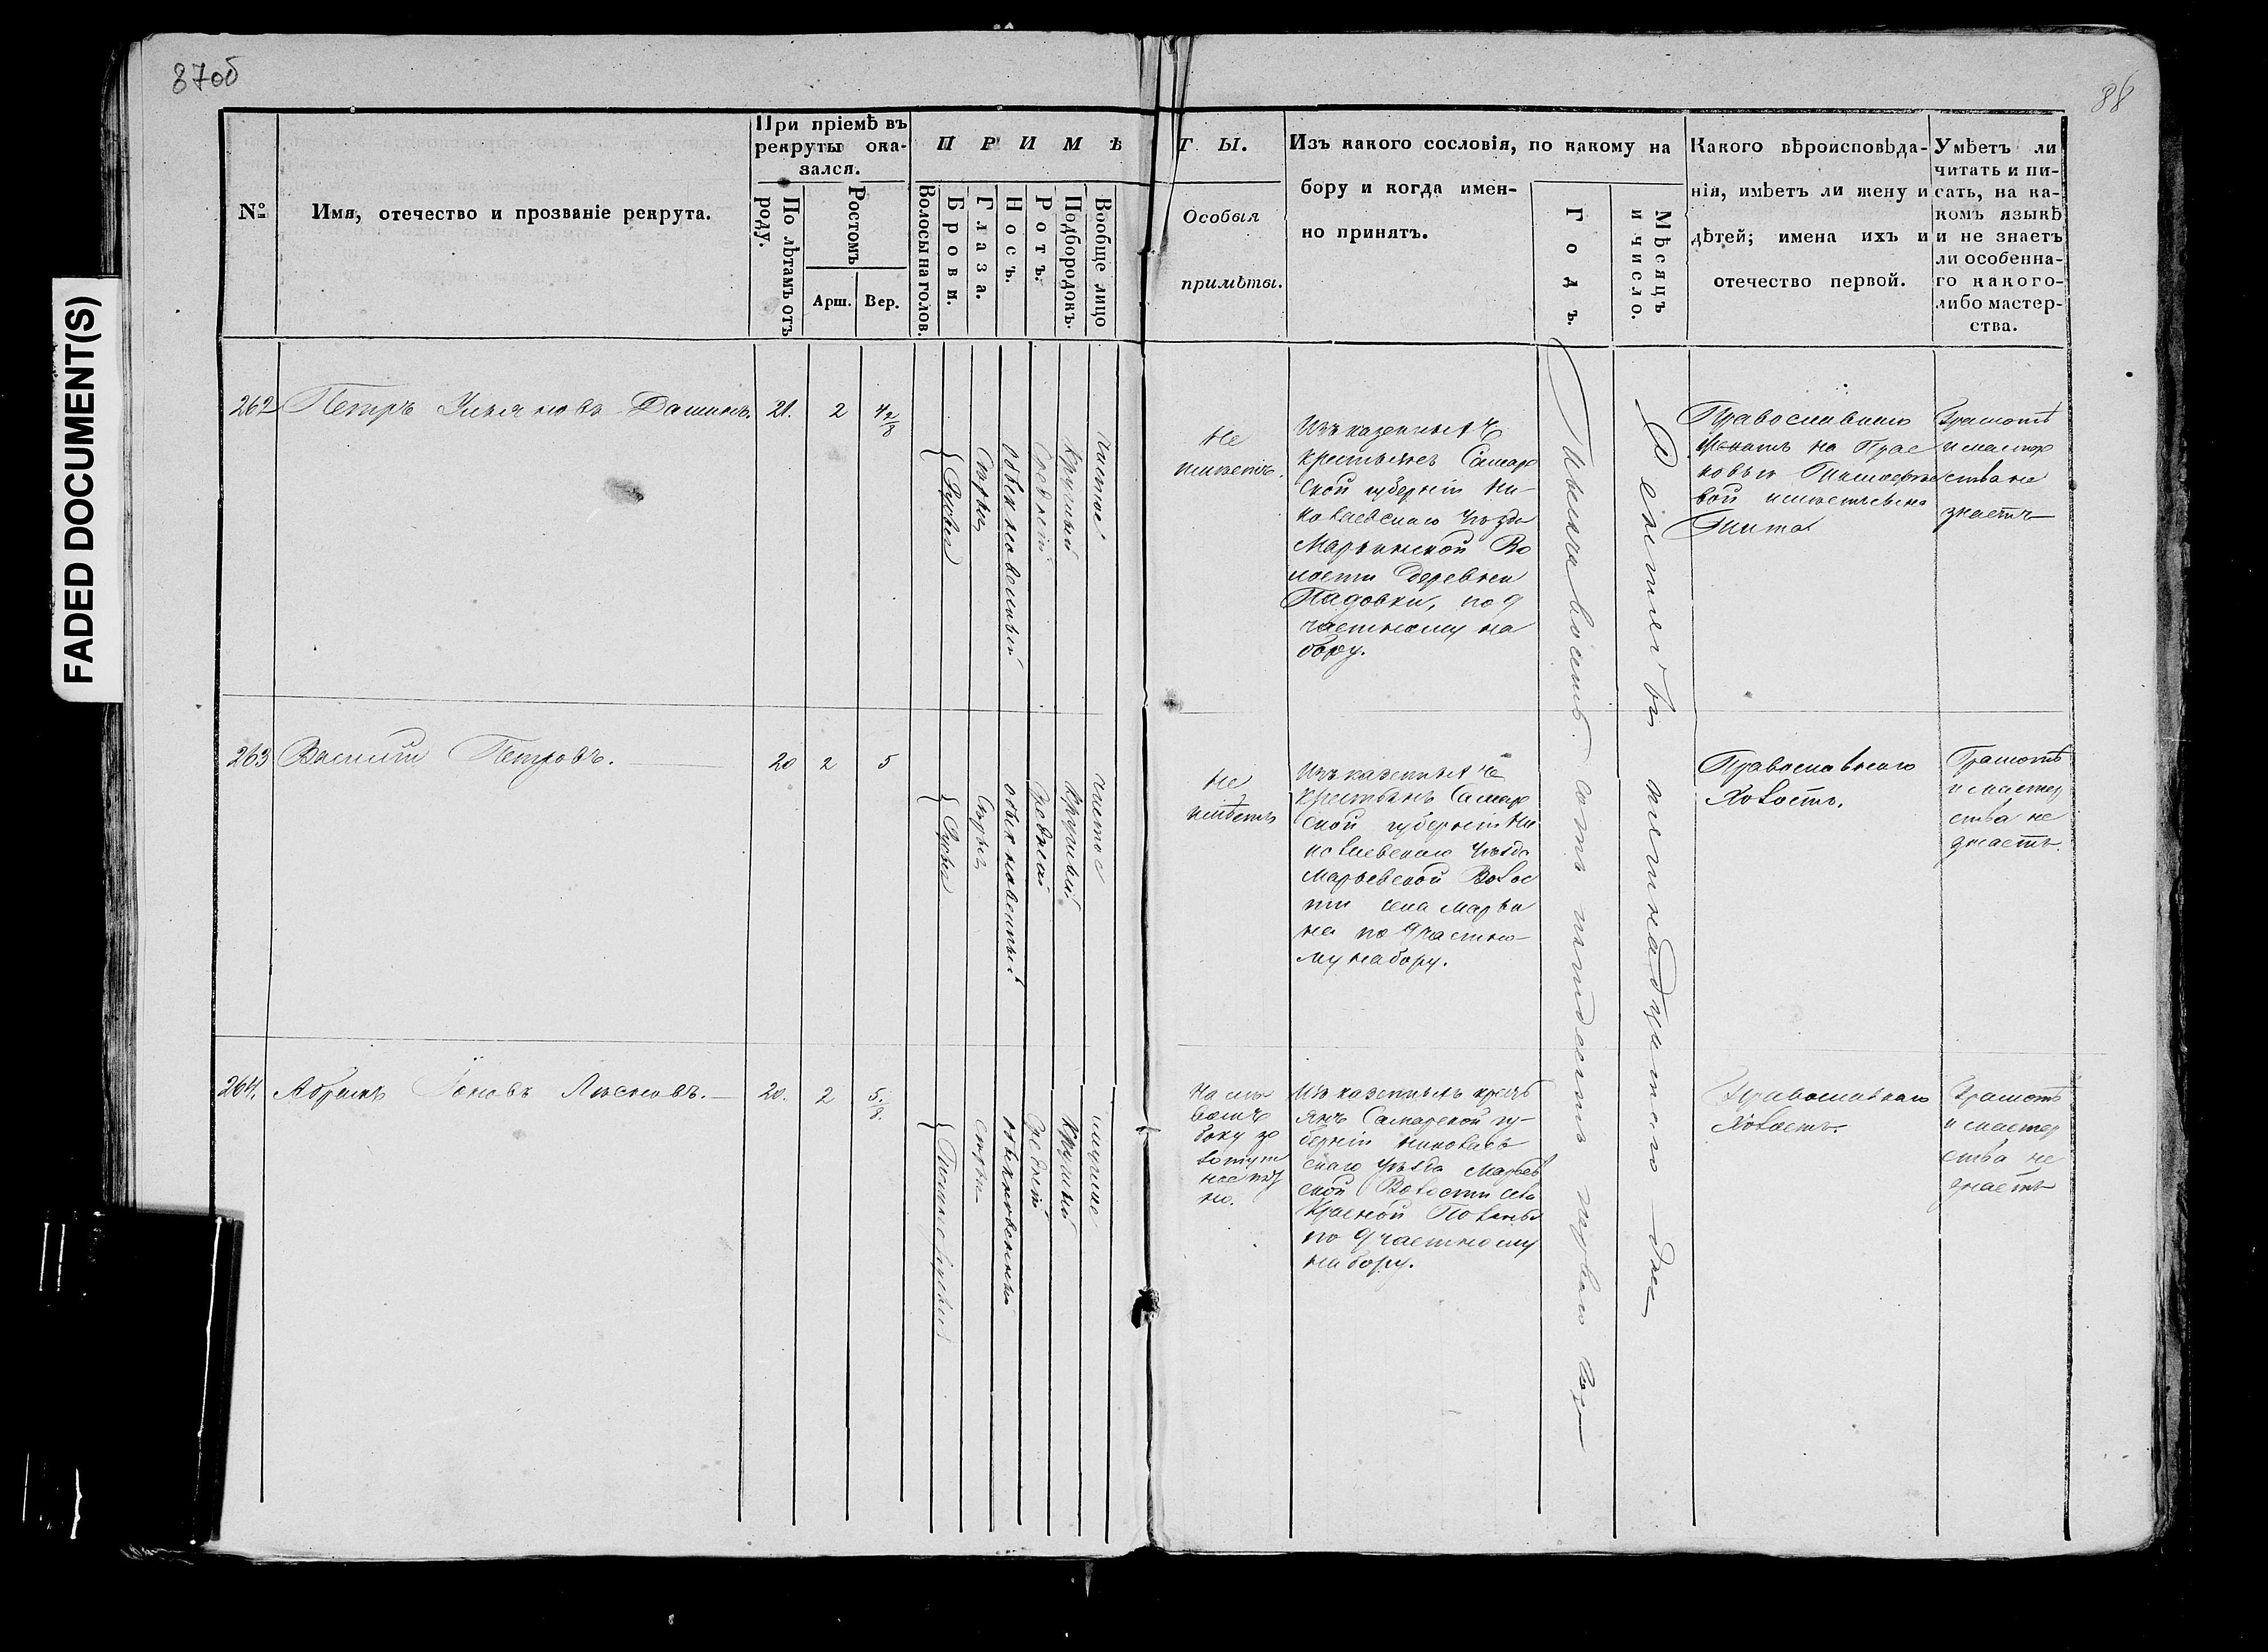 87об
88
FADED DOCUMENT(S)
№
Имя, отечество и прозваніе рекрута.
При пріемѣ въ
рекруты ока-
зался.
По лѣтамъ отъ
роду.
Ростомъ
Арш.
Вер.
ПРИМѢ
Волосы на голов.
Брови.
Глаза.
Носъ.
Ротъ.
Подбородокъ.
Вообще лицо
ТЫ.
Особыя
примѣты.
Изъ какого сословія, по какому на
бору и когда имен-
но принятъ.
Годъ.
Мѣсяцъ
и число.
Какого вѣроисповѣда-
нія, имѣетъ ли жену и
дѣтей; имена ихъ и
отечество первой.
Умѣетъ ли
читать и пи-
сать, на ка-
комъ языкѣ
и не знаетъ
ли особенна-
го какого-
либо мастер-
ства.
262
Петръ Ульяновъ Дашинъ.
21.
2
4 2/8
Русыя
Сѣрыя
обыкновенный
Средній
Круглый
чистое
Не
имѣетъ.
Изъ казенныхъ
крестьянъ Самар
ской губерніи Ни-
колаевскаго Уѣзда
Марьинской Во
лости деревни
Падовки, по 9
частному на
бору.
Тысяча восемь сотъ пятдесятъ перваго года
Октября пятнадцатаго дня
Православнаго
Женатъ на Прас
ковьи
вой
Грамотѣ
и мастер
ства не
знаетъ
263
Василій Петровъ.
20
2
5
Русыя
Сѣрыя
обыкновенный
средній
круглый
чистое
Не
имѣетъ
Изъ казенныхъ
крестьянъ Самар
ской губерніи Ни
колаевскаго Уѣзда
Марьевской Волос
ти села Марьи
на по 9 частно-
му набору.
Православнаго
Холостъ.
Грамотѣ
и мастер
ства не
знаетъ.
264.
Абрамъ Іоновъ Лѣсновъ.
20.
2
5./8.
Темнорусыя
сѣрыя
обыкновенный
Средній
Круглый
смуглое
На лѣ
вомъ
боку зо
лотушн
ное пят
но.
Изъ казенныхъ кресть
янъ Самарской гу-
берніи Николаев
скаго Уѣзда Марьев
ской Волости села
Красной Поляны
по 9 частному
набору.
Православнаго
Холостъ.
Грамотѣ
и мастер
ства не
знаетъ